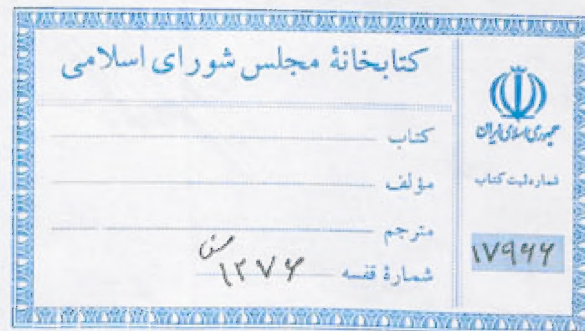 کتابخانهٔ مجلس شورای اسلامی
کتاب
مؤلف
مترجم
شمارهٔ قفسه ۱۲۷۶
جمهوری اسلامی ایران
شماره ثبت کتاب
۱۷۹۶۶